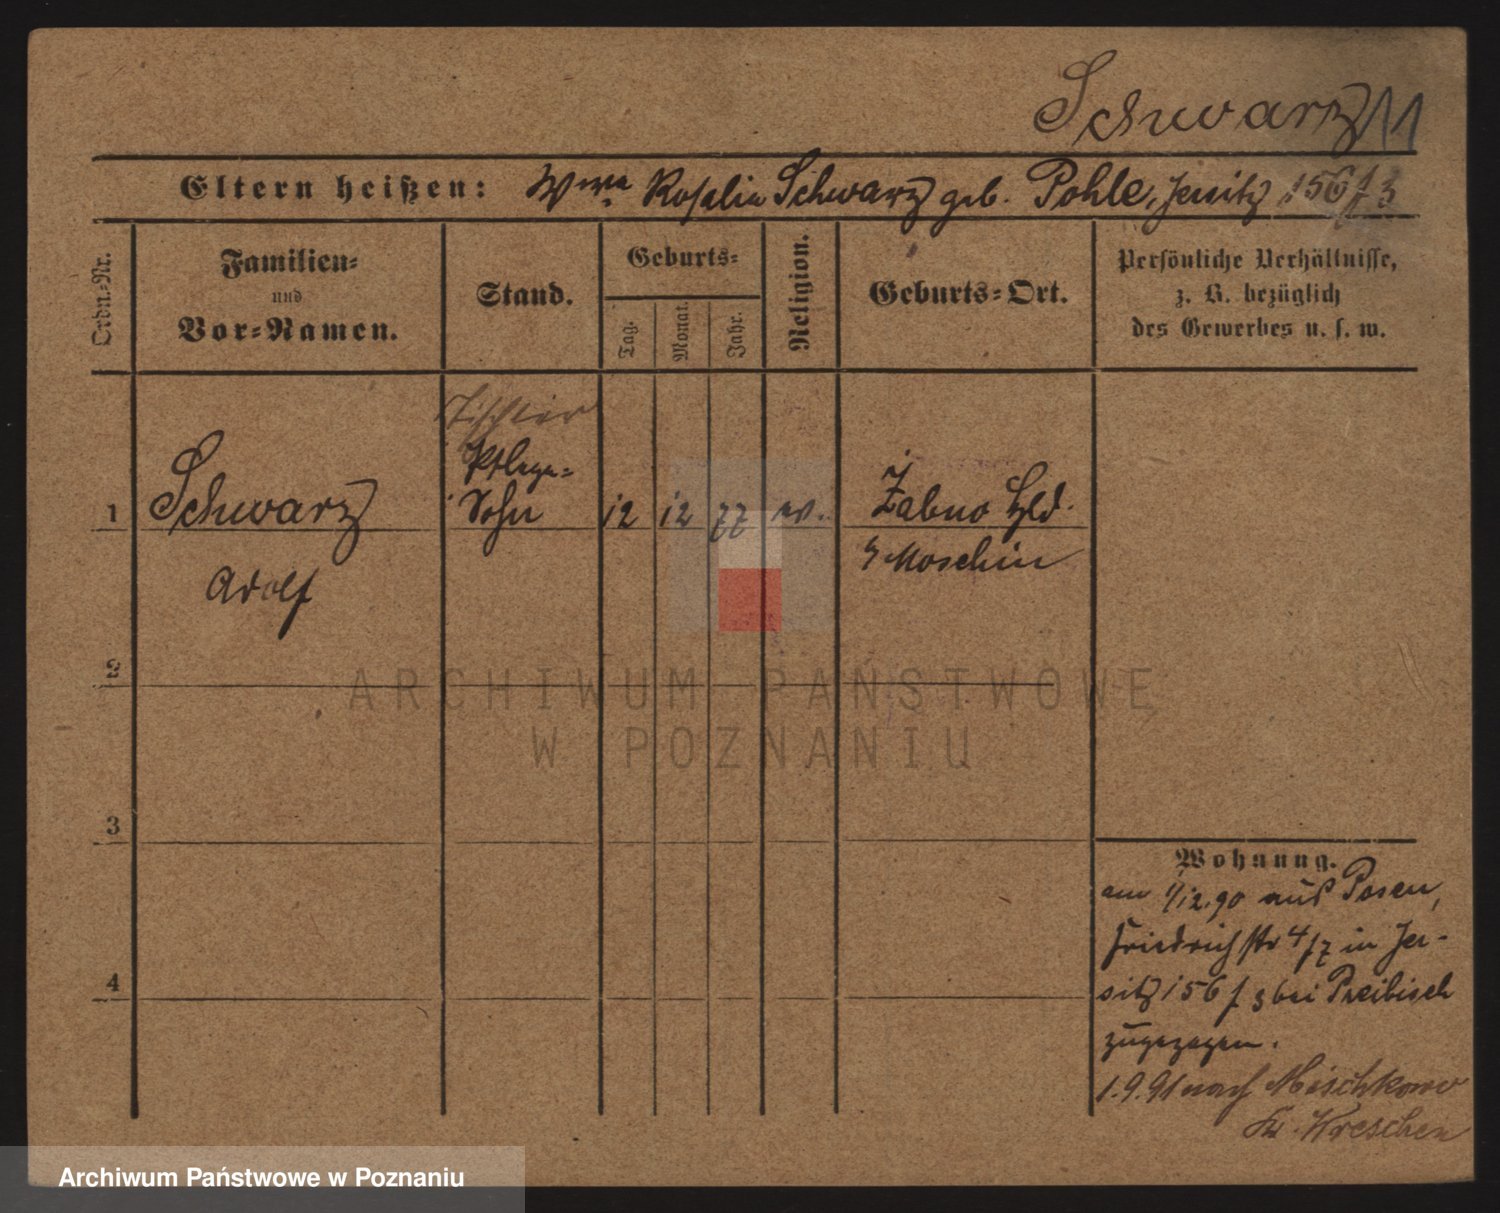 Schwarz 11
Eltern heißen: Wwe. Rosalie Schwarz geb. Pohle, Jersitz 156 f 3
Ordn.-Nr.
Familien-
und
Vor-Namen.
Stand.
Geburts-
Tag.
Monat.
Jahr.
Religion.
Geburts-Ort.
Persönliche Verhältnisse,
z. B. bezüglich
des Gewerbes u. s. w.
Tischler
Pflege-
1 Schwarz Sohn 12 12 77 ev. Żabno Hld.
Adolf b/ Moschin
2
3
4
Wohnung.
am 1/12.90 aus Posen,
Friedrichstr 4/7 in Jer-
sitz 156 f 3 bei Preibisch
zugezogen.
1.9.91 nach Mischkowo
Kr. Wreschen
ARCHIWUM PAŃSTWOWE
W POZNANIU
Archiwum Państwowe w Poznaniu